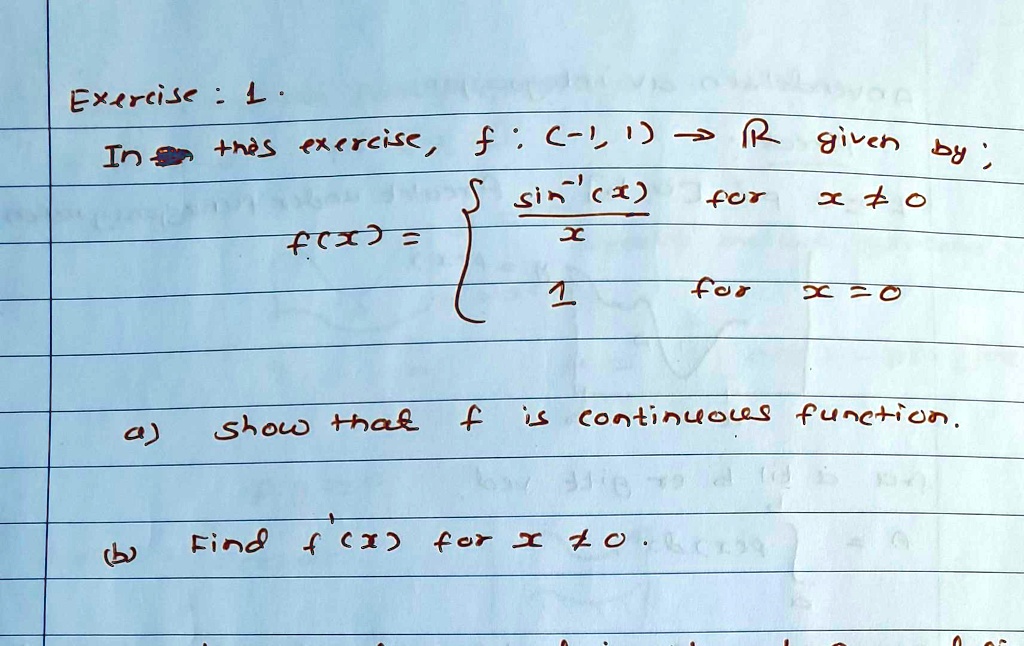 Exercise : 1.
In this exercise, f : (-1, 1) → ℝ given by ;
f(x) = { sin⁻¹(x) / x for x ≠ 0
1 for x = 0
a) show that f is continuous function.
(b) Find f'(x) for x ≠ 0 .